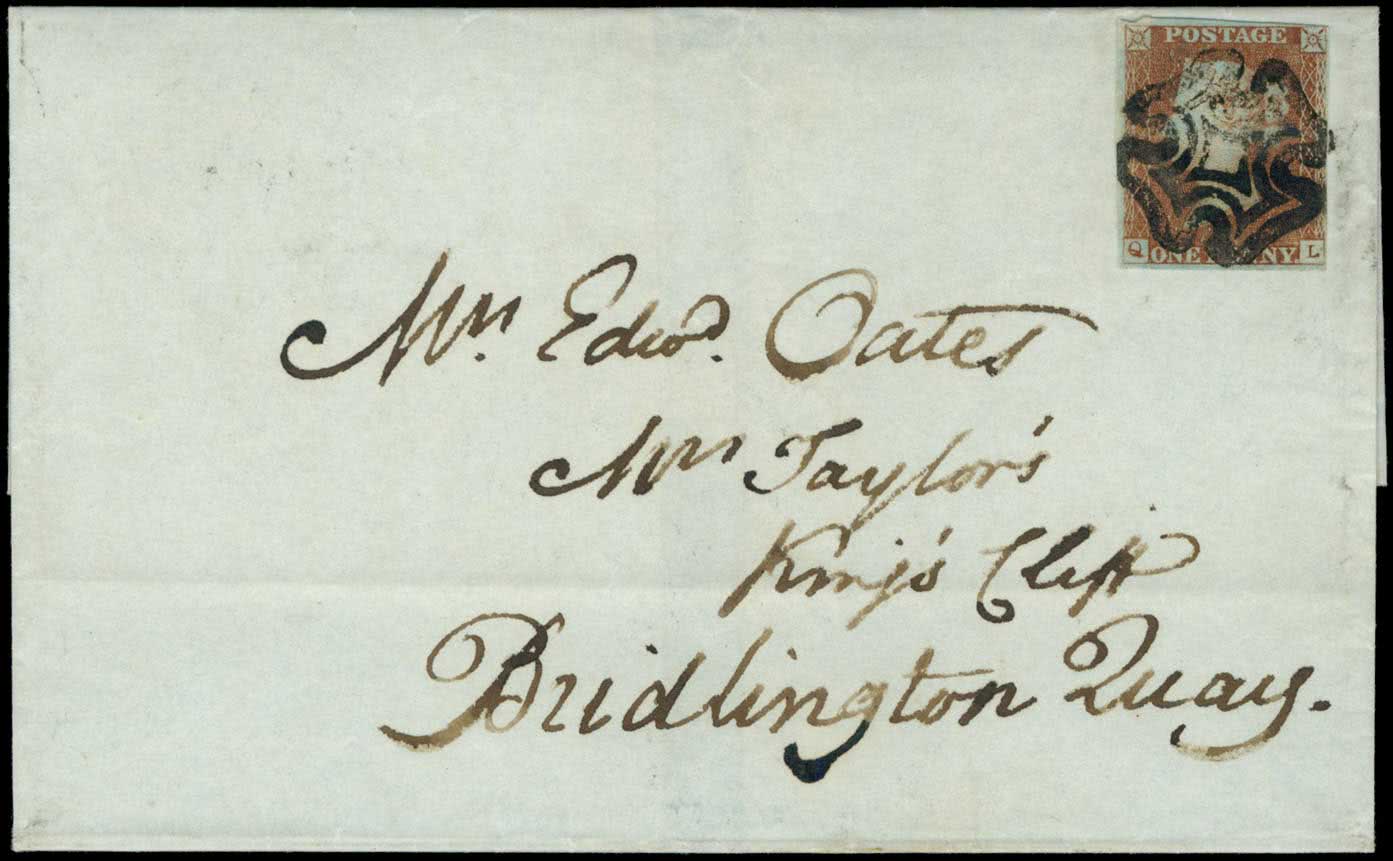 POSTAGE
Q ONE PENNY L
Mr. Edwd. Oates
Mrs Taylor's
King's Cliff
Bridlington Quay.